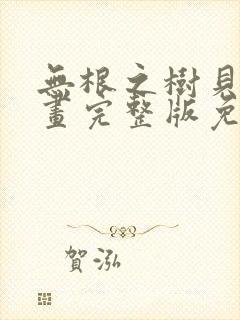 無根之樹見
畫完整版免
賀泓